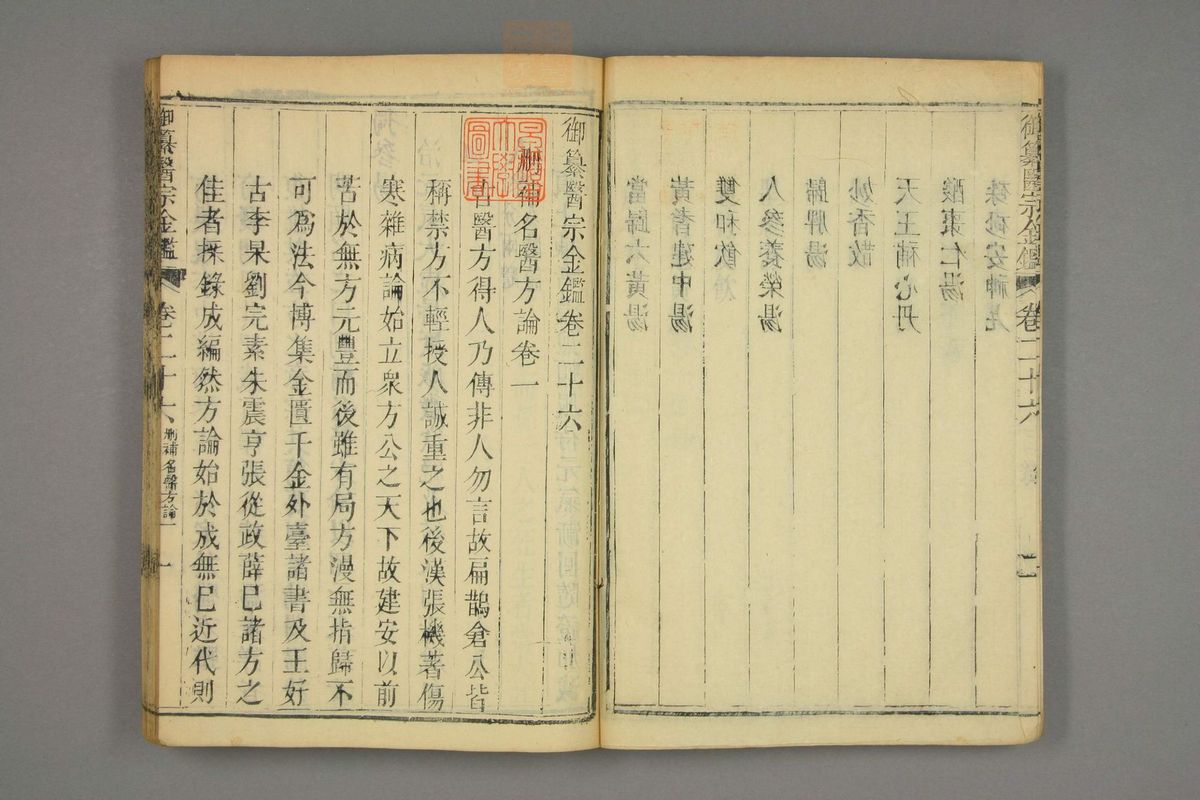 御纂醫宗金鑑 卷二十六
硃砂安神丸
酸棗仁湯
天王補心丹
妙香散
歸脾湯
人參養榮湯
雙和飲
黃耆建中湯
當歸六黃湯
御纂醫宗金鑑卷二十六
刪補名醫方論卷一
昔醫方得人乃傳非人勿言故扁鵲倉公皆
稱禁方不輕授人誠重之也後漢張機著傷
寒雜病論始立衆方公之天下故建安以前
苦於無方元豐而後雖有局方漫無指歸不
可爲法今博集金匱千金外臺諸書及王好
古李杲劉完素朱震亨張從政薛己諸方之
佳者採錄成編然方論始於成無已近代則
御纂醫宗金鑑 卷二十六 刪補名醫方論一 一